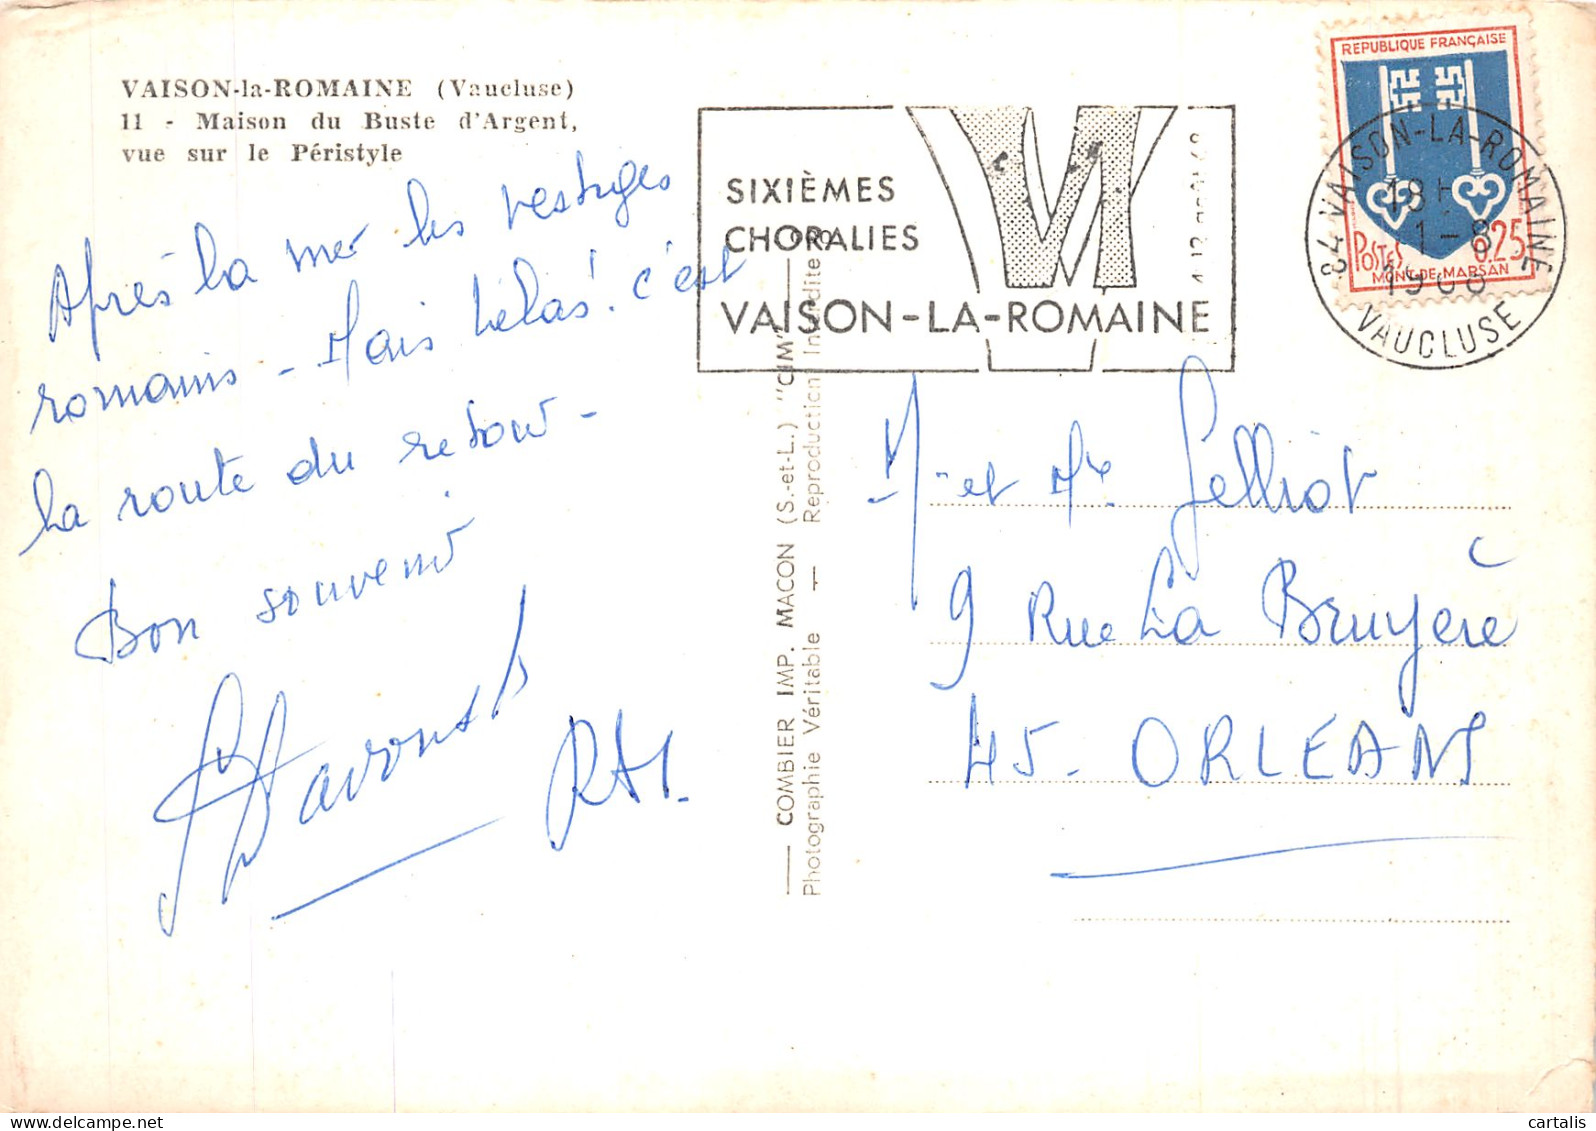 VAISON-la-ROMAINE (Vaucluse)
11 - Maison du Buste d'Argent,
vue sur le Péristyle
Après la mer les vestiges
romains - Mais hélas! c'est
la route du retour -
Bon souvenir
SIXIÈMES
CHORALIES
VAISON-LA-ROMAINE
REPUBLIQUE FRANÇAISE
POSTES 0.25
MONT-DE-MARSAN
84 VAISON-LA-ROMAINE
18H
1-8
VAUCLUSE
COMBIER IMP. MACON (S.-et-L.) "CIM"
Photographie Véritable — Reproduction Interdite
Mr et Me Gelliot
9 Rue La Bruyère
45- ORLEANS
cartalis
delcampe.net